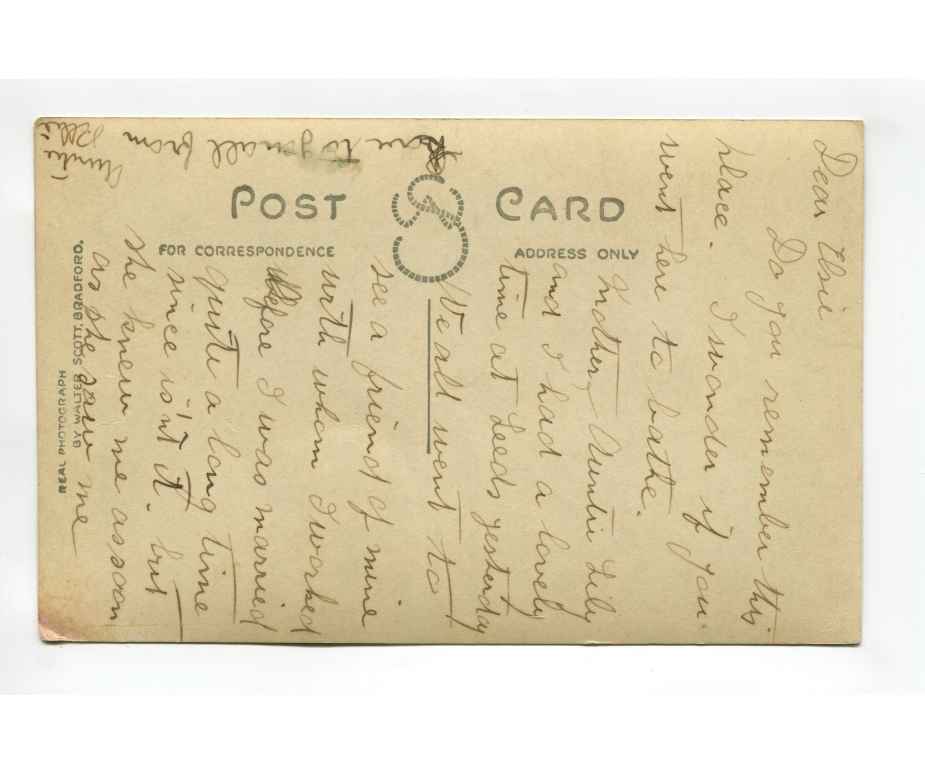 POST CARD
FOR CORRESPONDENCE
ADDRESS ONLY
REAL PHOTOGRAPH
BY WALTER SCOTT, BRADFORD.
Dear Elsie
Do you remember this
place. I wonder if you
went here to bathe.
Mother, Auntie Lily
and I had a lovely
time at Leeds yesterday
We all went to
see a friend of mine
with whom I worked
Before I was married
quite a long time
since is'nt it. but
she knew me as soon
as she saw me
Love to you all from
Auntie